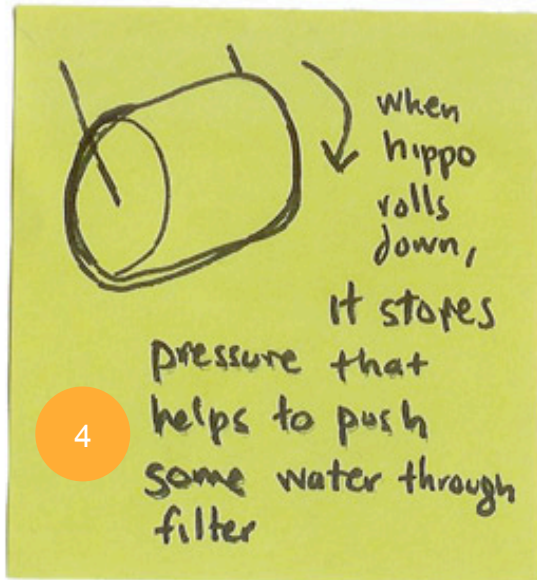 when
hippo
rolls
down,
it stores
pressure that
helps to push
some water through
filter
4